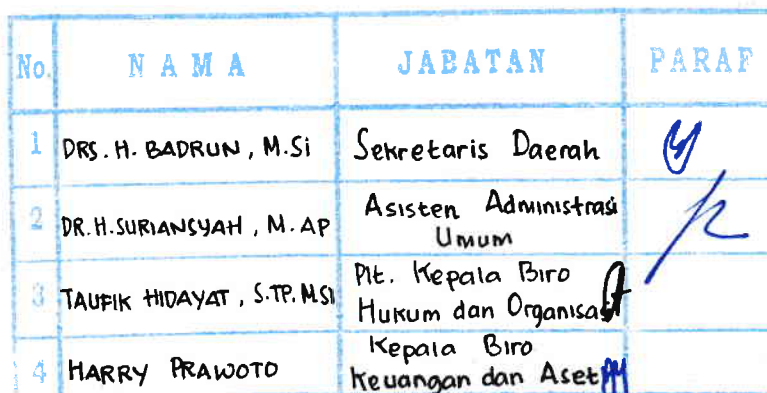 No. N A M A JABATAN PARAF
1 DRS. H. BADRUN, M.Si Sekretaris Daerah
2 DR. H. SURIANSYAH, M.AP Asisten Administrasi
Umum
3 TAUFIK HIDAYAT, S.TP. MSi Plt. Kepala Biro
Hukum dan Organisasi
4 HARRY PRAWOTO Kepala Biro
Keuangan dan Aset